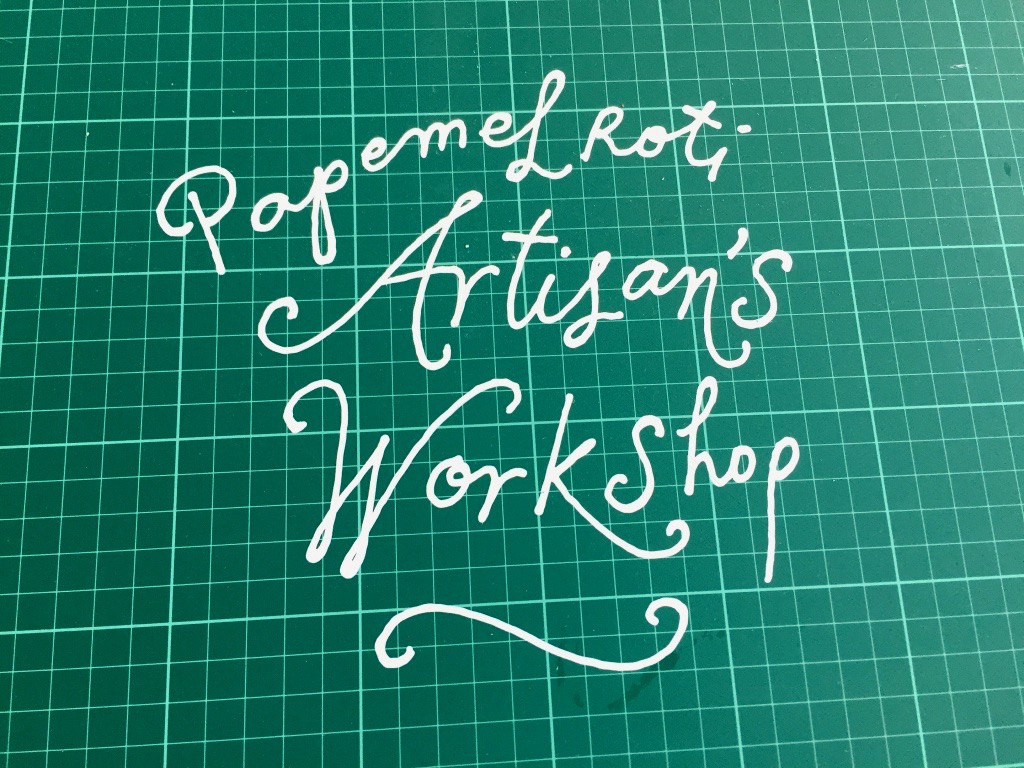 PapemeL Rot.
Artisan's
Workshop